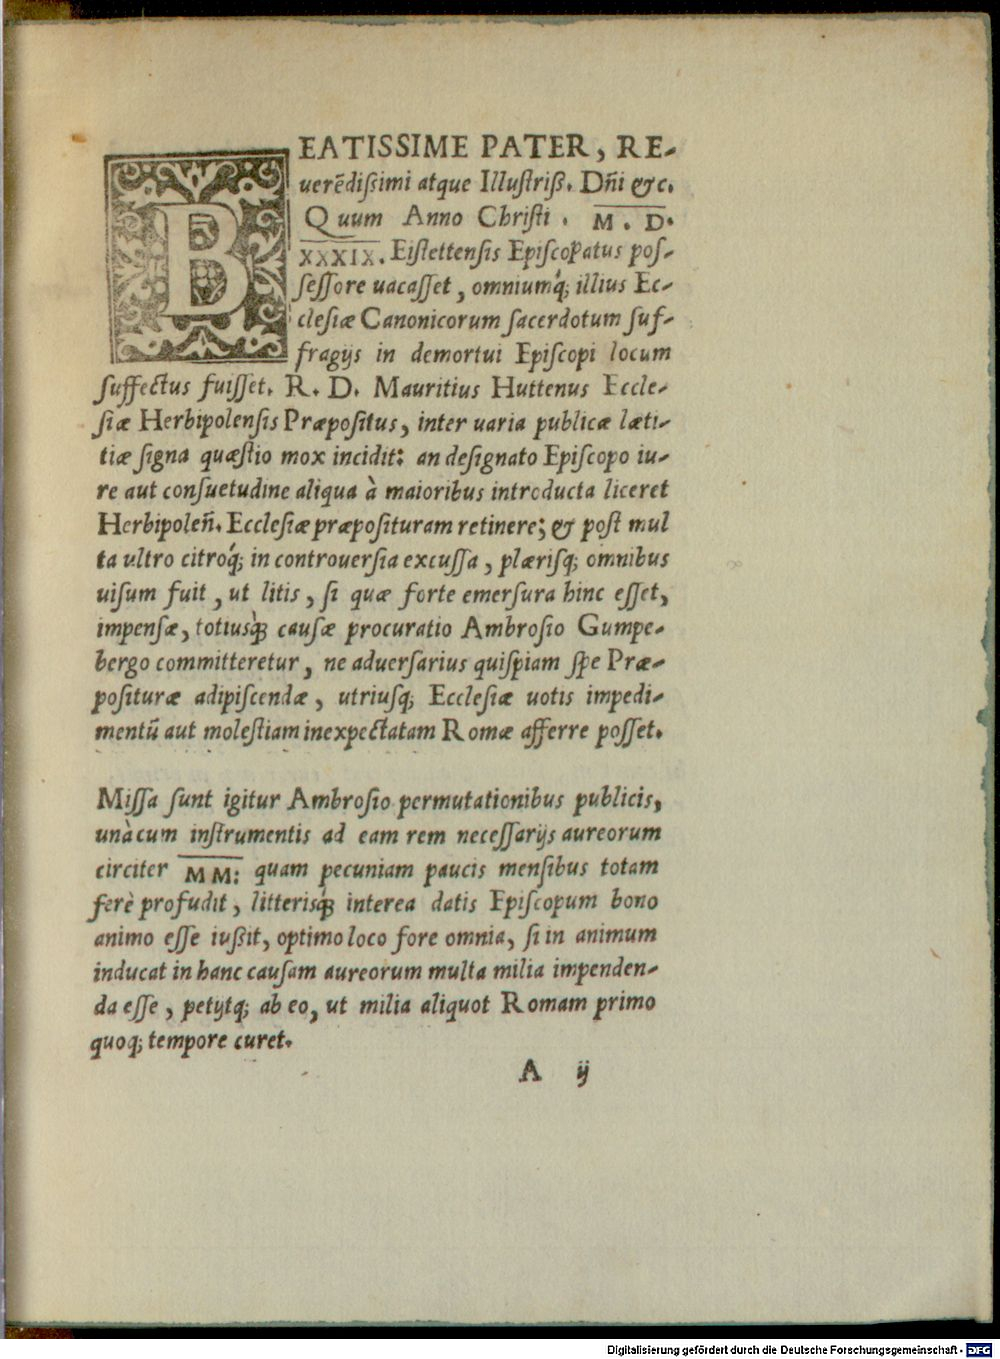 BEATISSIME PATER, RE-
uerēdißimi atque Illustriß. Dn̄i &c.
Quum Anno Christi . M . D.
XXXIX. Eistettensis Episcopatus pos-
sessore uacasset, omniumq́; illius Ec-
clesiæ Canonicorum sacerdotum suf-
fragijs in demortui Episcopi locum
suffectus fuisset. R. D. Mauritius Huttenus Eccle-
siæ Herbipolensis Præpositus, inter uaria publicæ læti-
tiæ signa quæstio mox incidit: an designato Episcopo iu-
re aut consuetudine aliqua à maioribus introducta liceret
Herbipoleñ. Ecclesiæ præposituram retinere; & post mul
ta ultro citroq́; in controuersia excussa, plærisq; omnibus
uisum fuit, ut litis, si quæ forte emersura hinc esset,
impensæ, totiusq́; causæ procuratio Ambrosio Gumpe-
bergo committeretur, ne aduersarius quispiam spe Præ-
posituræ adipiscendæ, utriusq; Ecclesiæ uotis impedi-
mentū aut molestiam inexpectatam Romæ afferre posset.
Missa sunt igitur Ambrosio permutationibus publicis,
unà cum instrumentis ad eam rem necessarijs aureorum
circiter M̅M̅: quam pecuniam paucis mensibus totam
ferè profudit, litterisq́; interea datis Episcopum bono
animo esse iußit, optimo loco fore omnia, si in animum
inducat in hanc causam aureorum multa milia impenden-
da esse, petijtq; ab eo, ut milia aliquot Romam primo
quoq; tempore curet.
A ij
Digitalisierung gefördert durch die Deutsche Forschungsgemeinschaft - DFG